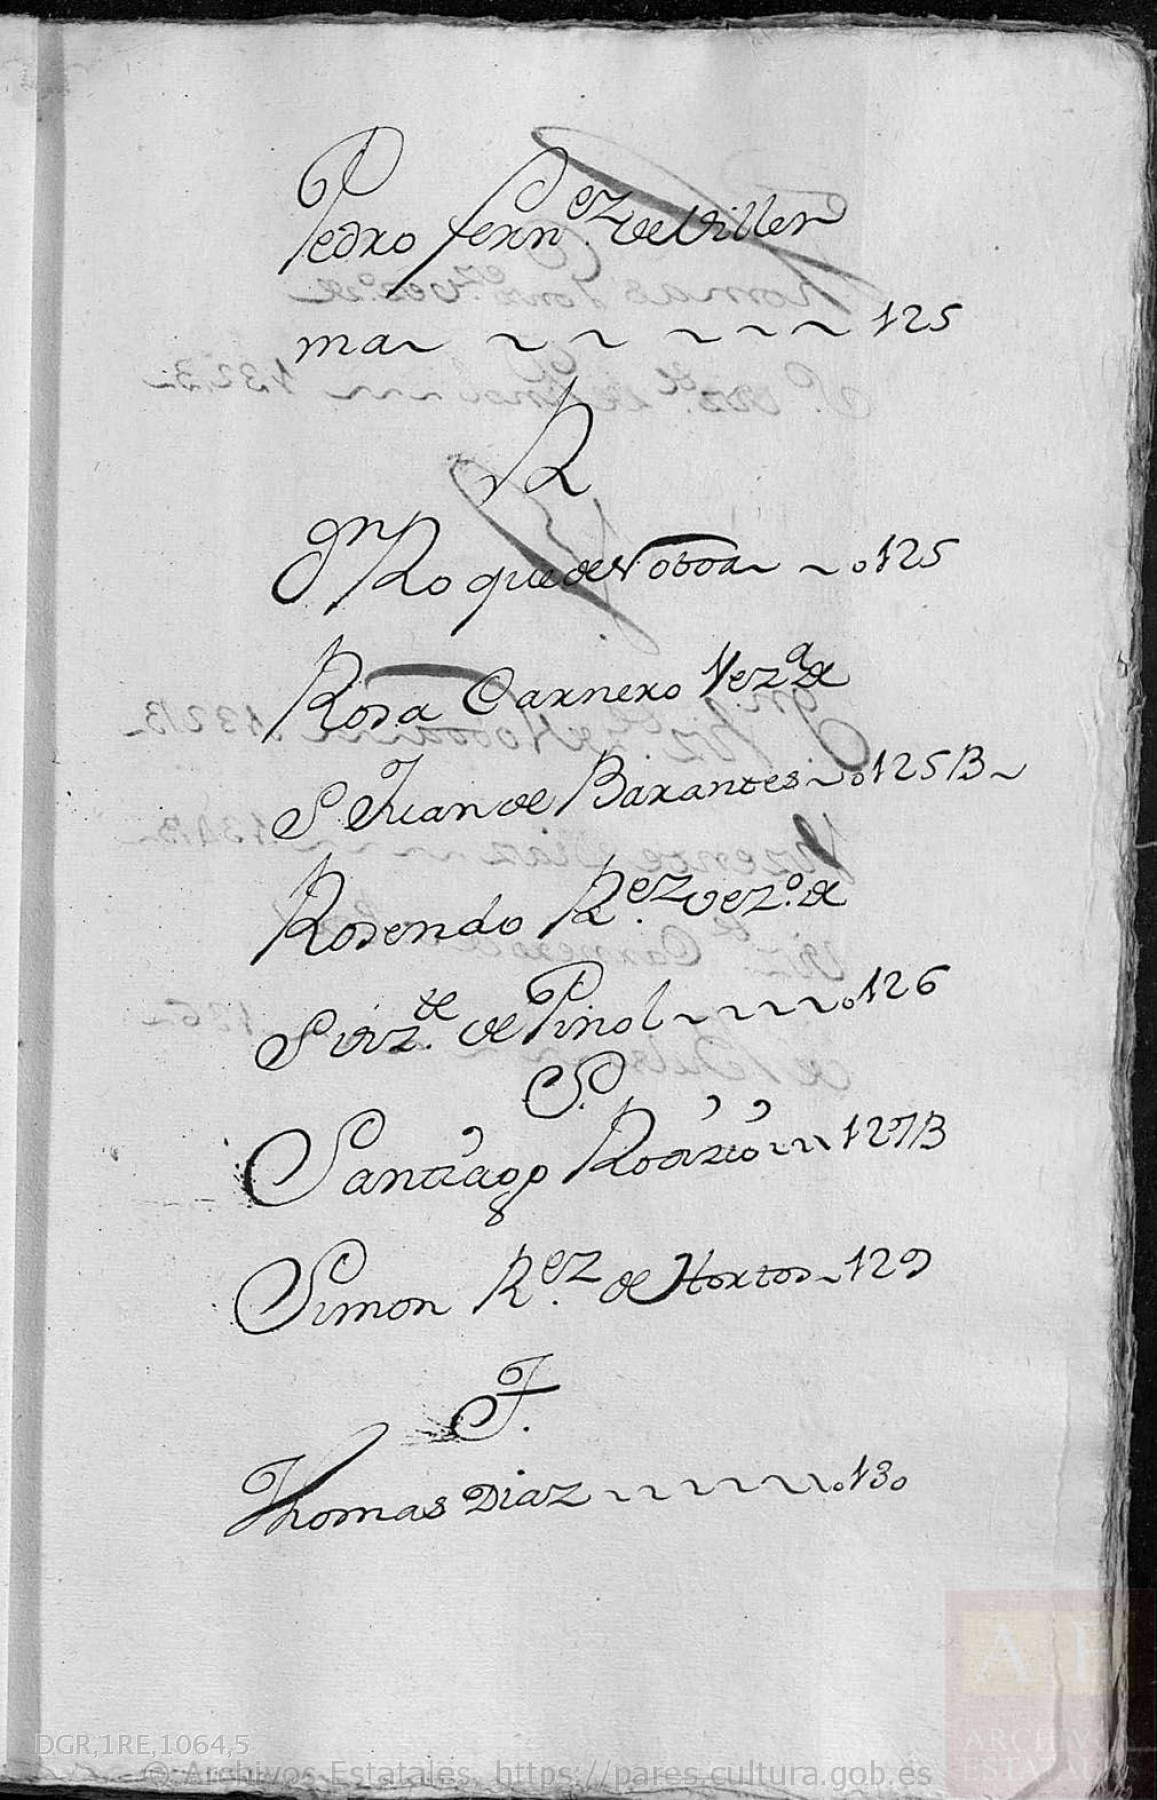 Pedro fern.ez de Viller
ma 125
R
Dn Roque de Noboa 125
Rosa Carnero Vez.a de
S Juan de Barantes 125B
Rosendo R.ez vez.o de
S Viz.te de Pinol 126
S.
Santiago 127B
Simon R.ez de Hortos 129
T.
Thomas Diaz 130
DGR,1RE,1064,5
© Archivos Estatales, https://pares.cultura.gob.es
AE
ARCHIVOS
ESTATALES